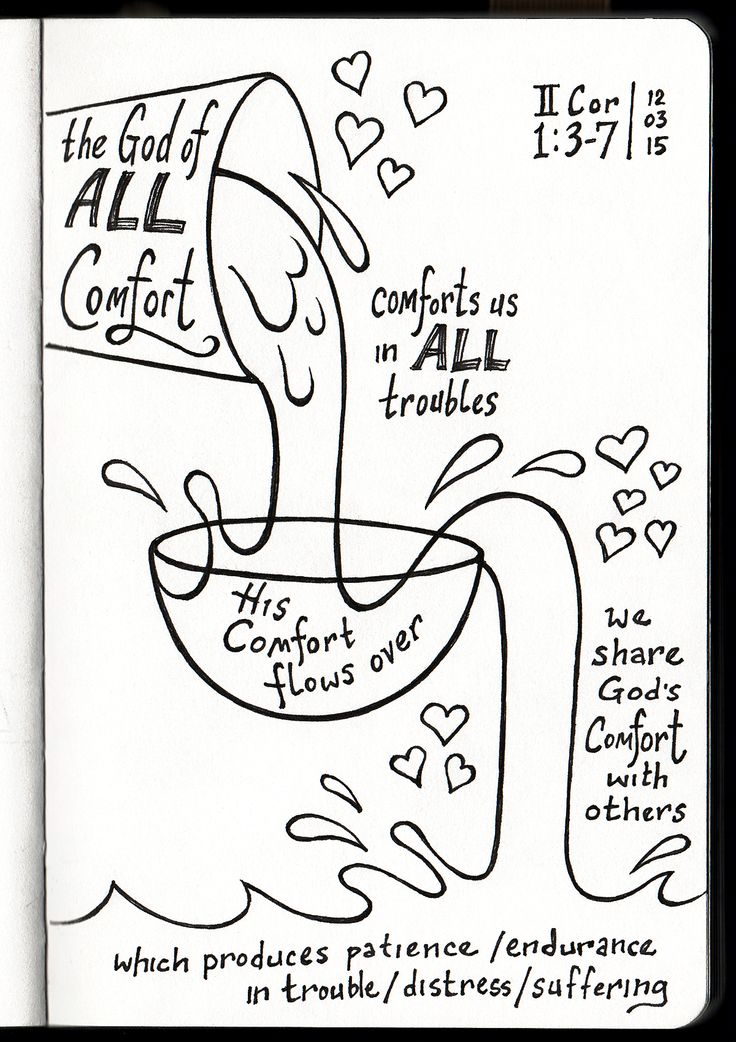 the God of
ALL
Comfort
II Cor
1:3-7
12
03
15
comforts us
in ALL
troubles
His
Comfort
flows over
we
share
God's
Comfort
with
others
which produces patience / endurance
in trouble / distress / suffering